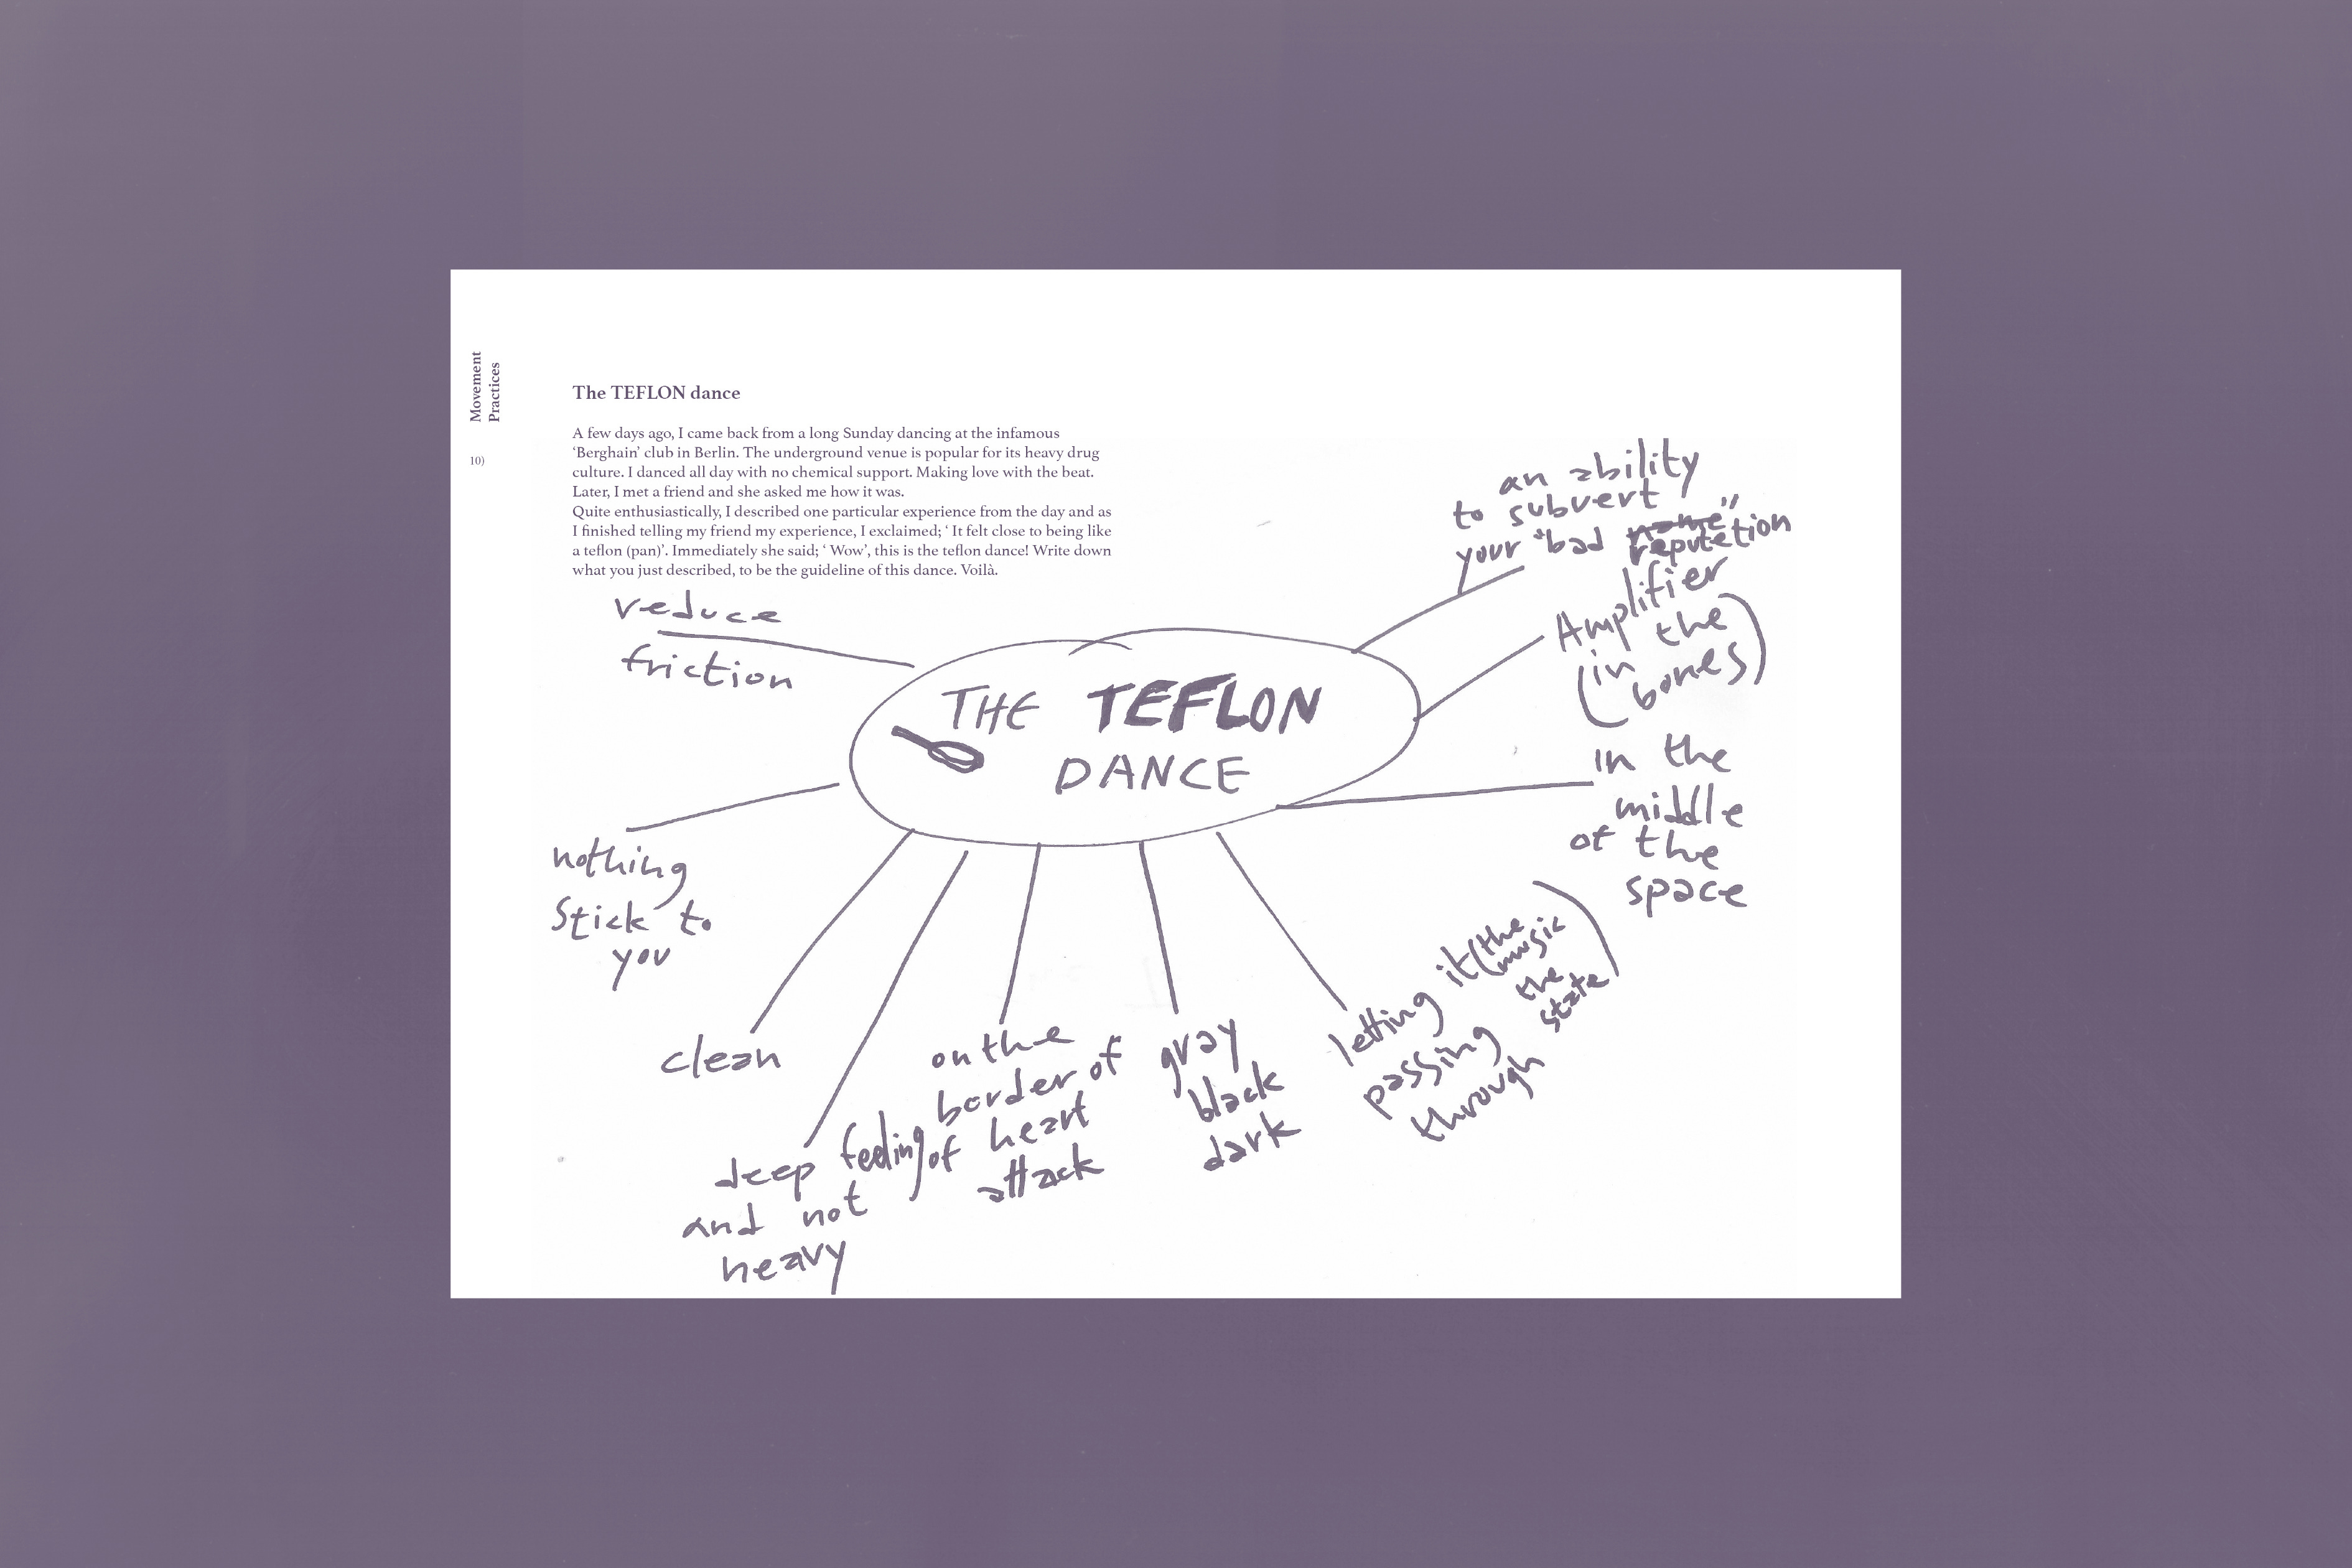 Movement
Practices
10)
The TEFLON dance
A few days ago, I came back from a long Sunday dancing at the infamous
‘Berghain’ club in Berlin. The underground venue is popular for its heavy drug
culture. I danced all day with no chemical support. Making love with the beat.
Later, I met a friend and she asked me how it was.
Quite enthusiastically, I described one particular experience from the day and as
I finished telling my friend my experience, I exclaimed; ‘ It felt close to being like
a teflon (pan)’. Immediately she said; ‘ Wow’, this is the teflon dance! Write down
what you just described, to be the guideline of this dance. Voilà.
THE TEFLON
DANCE
reduce
friction
nothing
stick to
you
clean
deep feeling
and not
heavy
on the
border of
of heart
attack
gray
black
dark
letting it (the
music
the
state)
passing
through
in the
middle
of the
space
Amplifier
(in the
bones)
an ability
to subvert
your "bad name"
reputetion